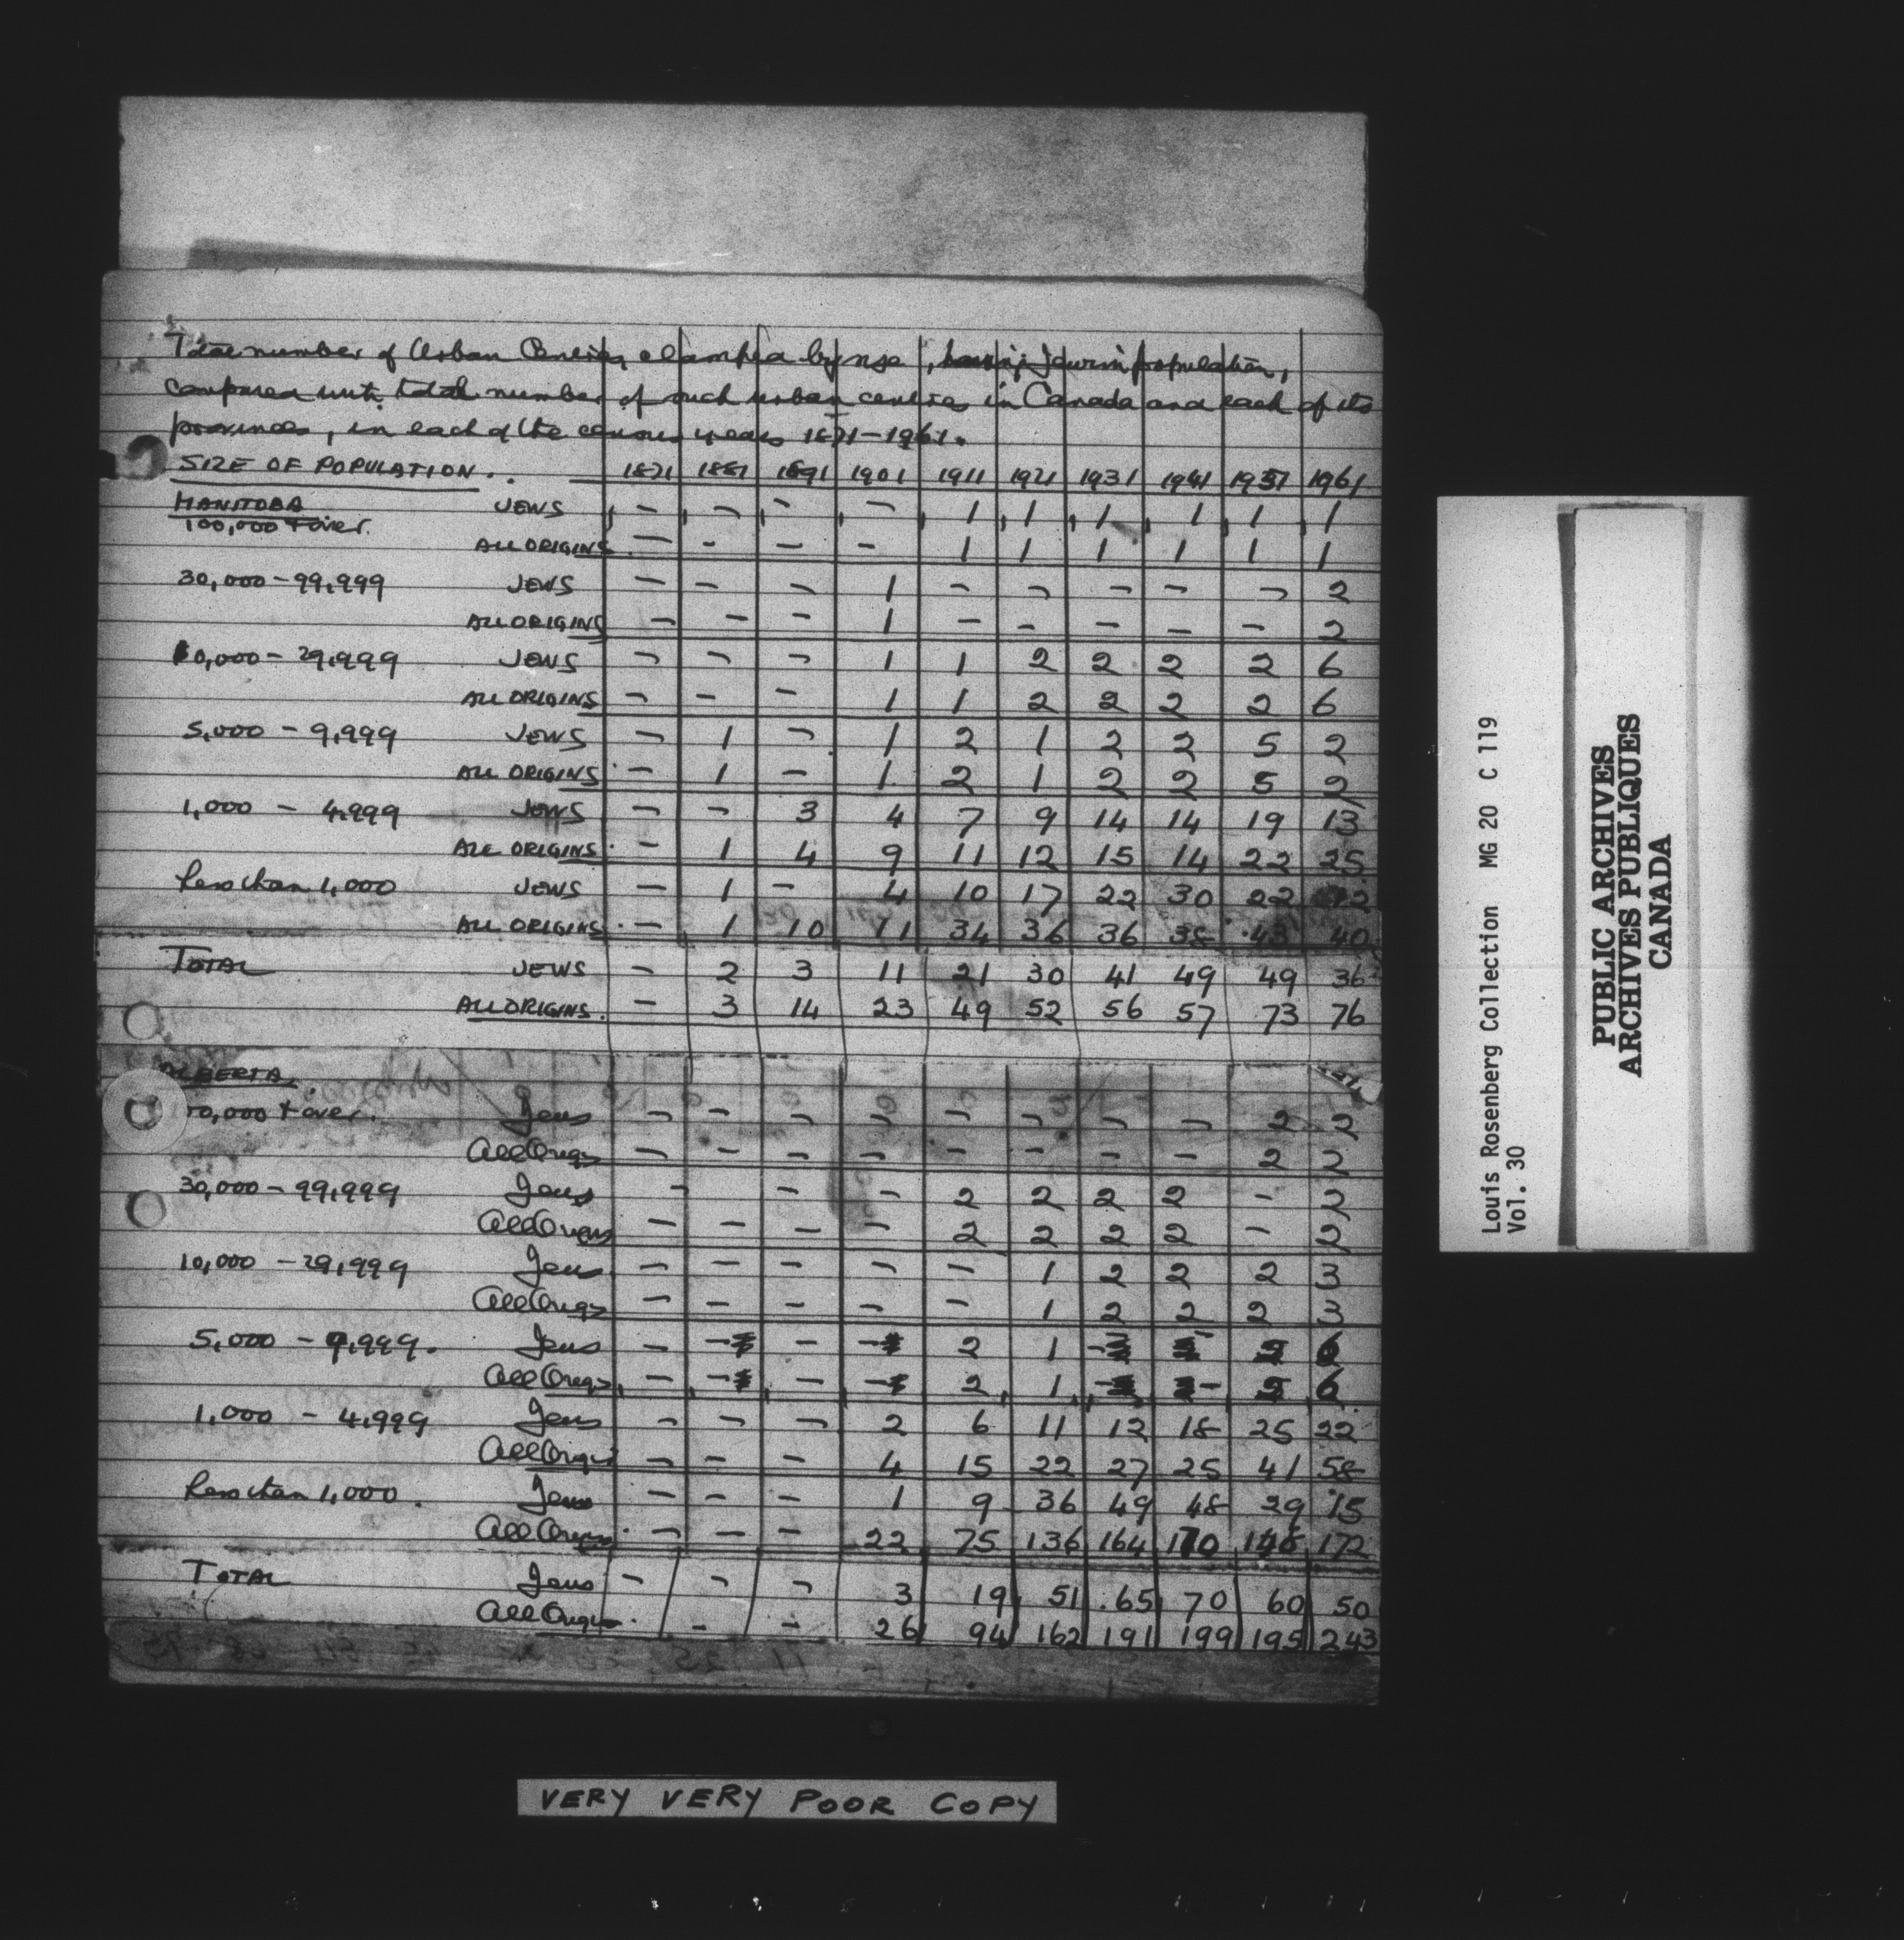 Total number of Urban Centres, classified by size, having Jewish population,
compared with total number of such urban centres in Canada and each of its
provinces, in each of the census years 1871-1961.
SIZE OF POPULATION. 1871 1881 1891 1901 1911 1921 1931 1941 1951 1961
MANITOBA
100,000 + over. JEWS - - - - 1 1 1 1 1 1
ALL ORIGINS - - - - 1 1 1 1 1 1
30,000-99,999 JEWS - - - 1 - - - - - 2
ALL ORIGINS - - - 1 - - - - - 2
10,000-29,999 JEWS - - - 1 1 2 2 2 2 6
ALL ORIGINS - - - 1 1 2 2 2 2 6
5,000 - 9,999 JEWS - 1 - 1 2 1 2 2 5 2
ALL ORIGINS - 1 - 1 2 1 2 2 5 2
1,000 - 4,999 JEWS - - 3 4 7 9 14 14 19 13
ALL ORIGINS - 1 4 9 11 12 15 14 22 25
Less than 1,000 JEWS - 1 - 4 10 17 22 30 22 12
ALL ORIGINS - 1 10 11 34 36 36 38 43 40
TOTAL JEWS - 2 3 11 21 30 41 49 49 36
ALL ORIGINS. - 3 14 23 49 52 56 57 73 76
ALBERTA.
00,000 + over. Jews - - - - - - - - 2 2
All Origs - - - - - - - - 2 2
30,000-99,999 Jews - - - 2 2 2 2 - 2
All Origs - - - - 2 2 2 2 - 2
10,000 -29,999 Jews - - - - - 1 2 2 2 3
All Origs - - - - - 1 2 2 2 3
5,000 - 9,999. Jews - - - - 2 1 - - 2 6
All Origs - - - - 2 1 - - 2 6
1,000 - 4,999 Jews - - - 2 6 11 12 18 25 22
All Origs - - - 4 15 22 27 25 41 58
Less than 1,000. Jews - - - 1 9 36 49 48 29 15
All Origs - - - 22 75 136 164 170 172
TOTAL Jews - - - 3 19 51 65 70 60 50
All Origs - - 26 94 162 191 199 195 243
VERY VERY POOR COPY
Louis Rosenberg Collection MG 20 C 119
Vol. 30
PUBLIC ARCHIVES
ARCHIVES PUBLIQUES
CANADA